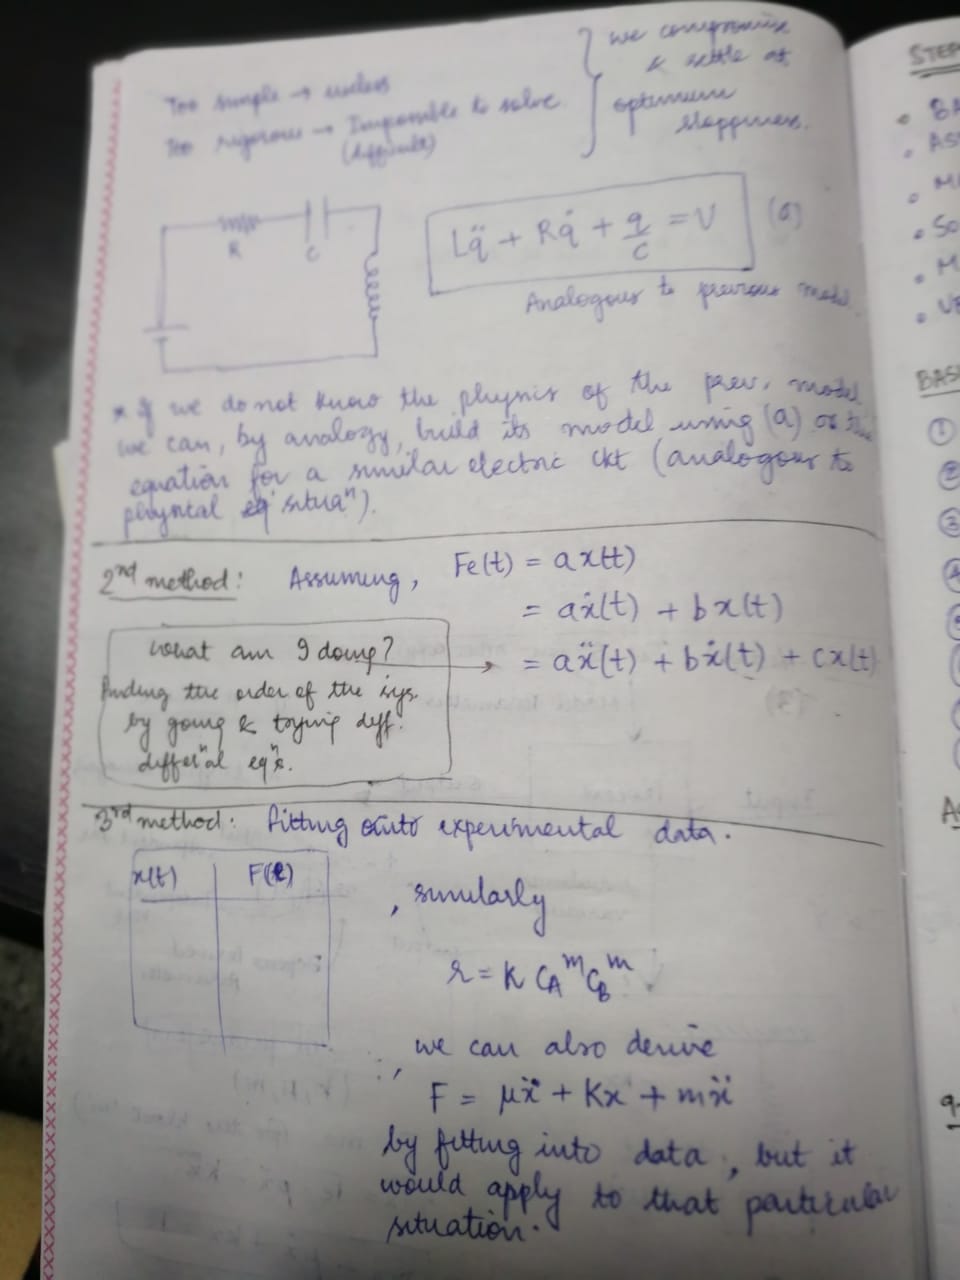 Too simple → useless
Too rigorous → Impossible to solve
(difficult)
we compromise
& settle at
optimum
sloppiness.
R
C
Lq̈ + Rq̇ + q/c = V
(a)
Analogous to previous model.
* If we do not know the physics of the prev. model
we can, by analogy, build its model using (a) or the
equation for a similar electric ckt (analogous to
physical situaⁿ).
2nd method: Assuming, Fe(t) = ax(t)
= aẋ(t) + bx(t)
= aẍ(t) + bẋ(t) + cx(t)
What am I doing?
finding the order of the sys.
by going & trying diff.
differⁿal eqⁿs.
3rd method: fitting into experimental data.
x(t) F(t)
, similarly
r = K C_A^m C_B^m
∴, we can also derive
F = μẋ + Kx + mẍ
by fitting into data, but it
would apply to that particular
situation.
STEP
BA
AS
M
SO
M
VE
BASI
1
2
3
4
5